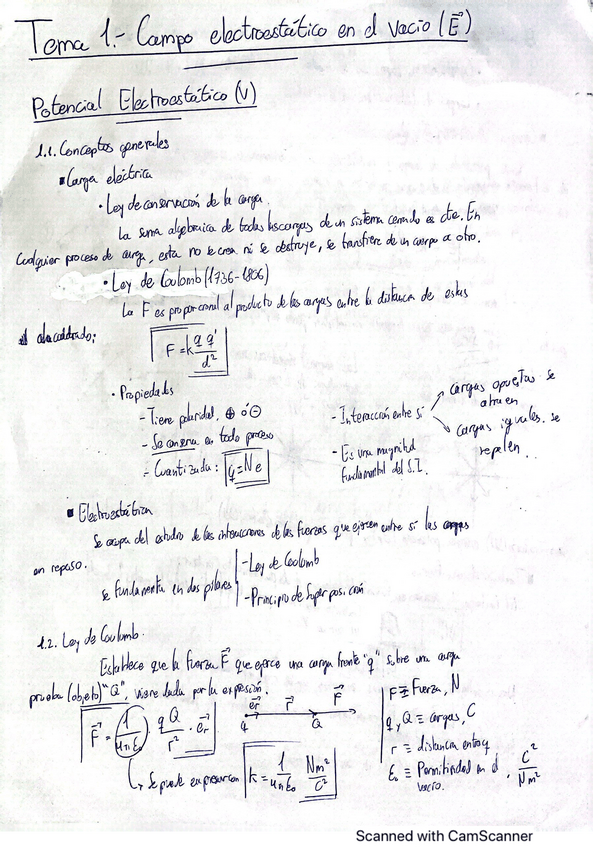 Tema 1.- Campo electroestático en el vacío (E⃗)
Potencial Electroestático (V)
1.1. Conceptos generales
▪ Carga eléctrica
• Ley de conservación de la carga.
La suma algebraica de todas las cargas de un sistema cerrado es cte. En
Cualquier proceso de carga, esta no se crea ni se destruye, se transfiere de un cuerpo a otro.
• Ley de Coulomb (1736-1806)
La F es proporcional al producto de las cargas entre la distancia de estas
al cuadrado:
F = k q q' / d²
• Propiedades
- Tiene polaridad, ⊕ ó ⊖
- Se conserva en todo proceso
- Cuantizada: q = N e
- Interacción entre sí
cargas opuestas se
atraen
cargas iguales se
repelen
- Es una magnitud
fundamental del S.I.
▪ Electroestática
Se ocupa del estudio de las interacciones de las fuerzas que ejercen entre sí las cargas
en reposo.
se fundamenta en dos pilares
- Ley de Coulomb
- Principio de Superposición
1.2. Ley de Coulomb.
Establece que la fuerza F⃗ que ejerce una carga fuente "q" sobre una carga
prueba (objeto) "Q" viene dada por la expresión.
F⃗ = 1/4πε₀ · q Q / r² · e⃗r
e⃗r r⃗ F⃗
q Q
Se puede expresar con k = 1/4πε₀ Nm²/C²
F ≡ Fuerza, N
q, Q ≡ cargas, C
r ≡ distancia entre q
ε₀ ≡ Permitividad en el vacío. , C²/Nm²
Scanned with CamScanner